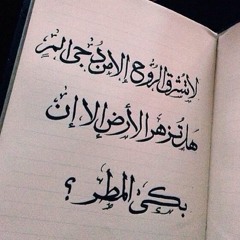 لا تشرق الروح إلا من دجى ألمٍ
هل تزهر الأرض إلا إن
بكى المطر ؟